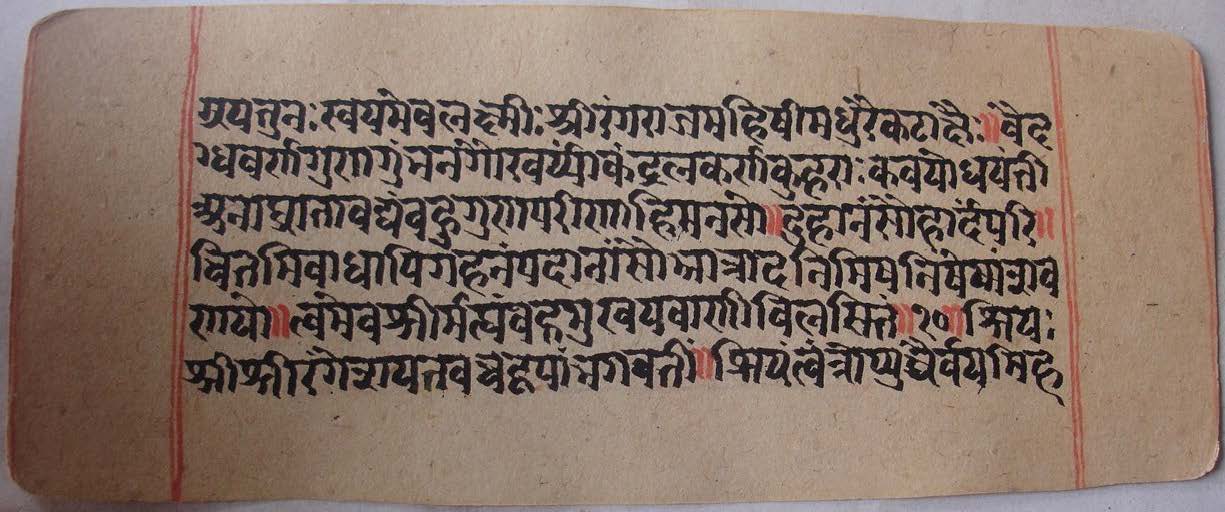 ग्रयतु नः स्वयमेव लक्ष्मीः श्रीरंगराजमहिषी मधुरैकटाक्षैः॥ वैद
ग्धवर्णगुणगुंभनगौरवर्य्यां कंडूलकर्णकुहराः कवयो धयंती
अनाघ्रातावद्यं वहुगुणपरीणाहि मनसो॥ दुहानं सौहार्दं परि॥
चितमिवाथापि गहनं पदानां सौभ्रात्रादनिमिषनिषेव्यं श्रव
णयो॥ त्वमेव श्रीर्मह्यं वहुमुखय वाणीविलसितं॥ १०॥ श्रियः
श्री श्रीरंगेशय तव च हृद्यां भगवतीं॥ श्रियं त्वत्तोप्युच्चैर्वयमिह